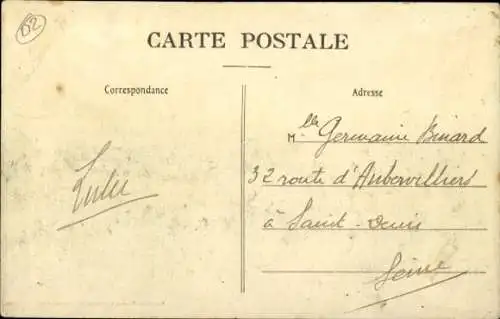 02
CARTE POSTALE
Correspondance
Adresse
Mlle Germaine Binard
32 route d'Aubervilliers
à Saint-Denis
Seine
Lulu